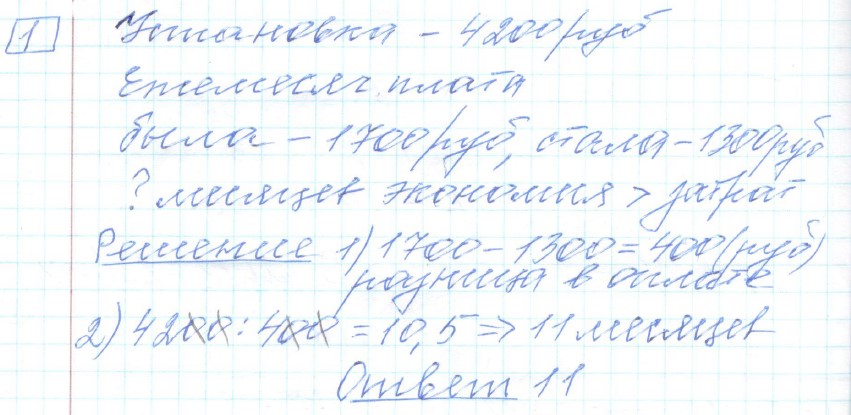 1 Установка - 4200 руб
Ежемесяч. плата
была - 1700 руб, стала - 1300 руб
? месяцев экономия > затрат
Решение 1) 1700 - 1300 = 400 (руб)
разница в оплате
2) 4200 : 400 = 10,5 => 11 месяцев
Ответ 11